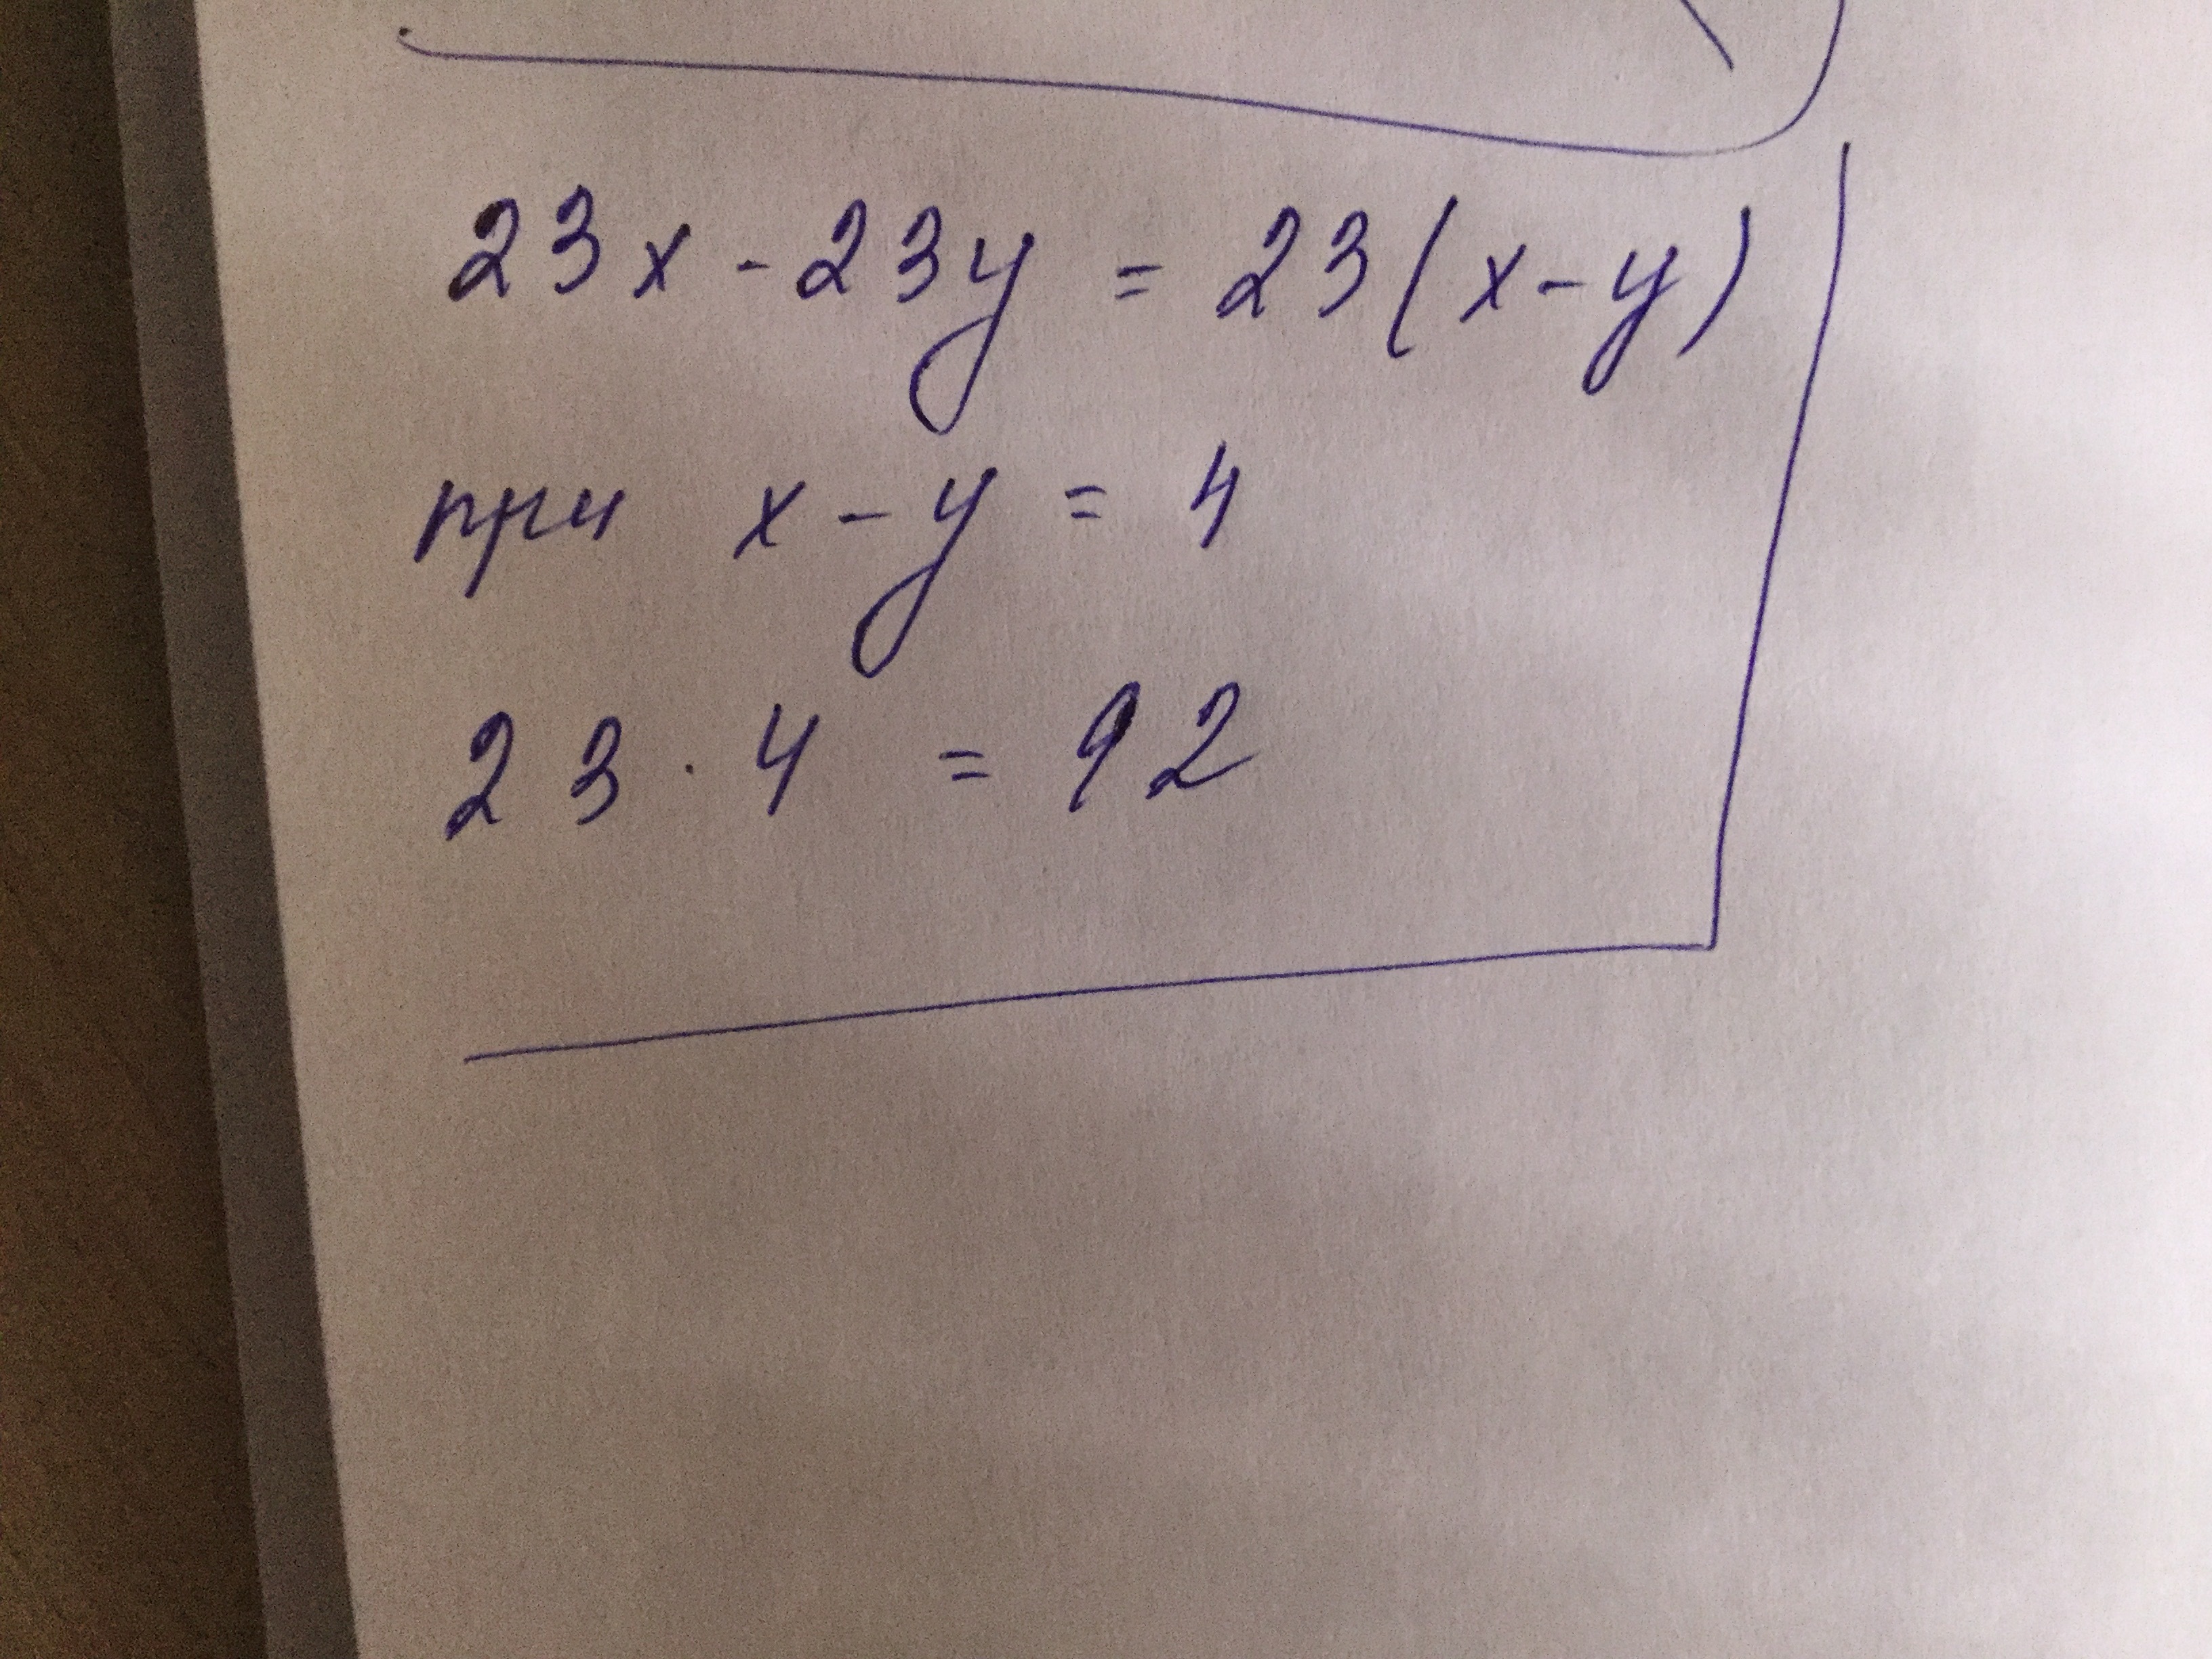 23x - 23y = 23(x-y)
при x-y = 4
23 · 4 = 92